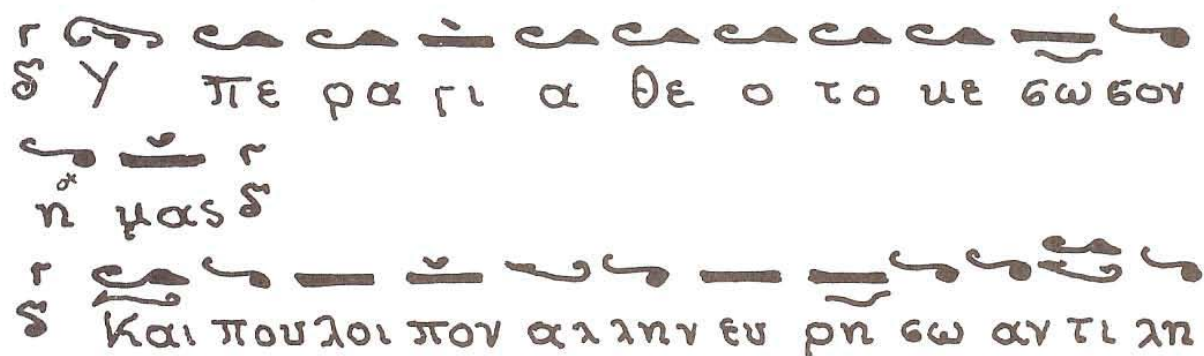 δ Υ πε ρα γι α θε ο το κε σω σον
η μας δ
δ Και που λοι πον αλ λην ευ ρη σω αν τι λη